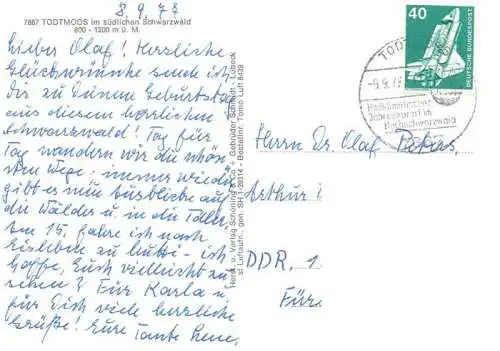 8.9.77
7867 TODTMOOS im südlichen Schwarzwald
800 - 1200 m ü. M.
Lieber Olaf! Herzliche
Glückwünsche sende ich
Dir zu Deinem Geburtstag
aus diesem herrlichen
Schwarzwald! Tag für
Tag wandern wir die schön-
sten Wege, immer wieder
gibt es neue Ausblicke auf
die Wälder u. in die Täler.
Am 15. fahre ich nach
Eisleben zu Mutti - ich
hoffe, Euch vielleicht zu
sehen? Für Karla u.
für Dich viele herzliche
Grüße! Eure Tante Lene.
Herst. u. Verlag Schöning & Co + Gebrüder Schmidt, Lübeck
s/ Luftaufn., gen. SH 1-29/14 - Bestellnr. Tomo Luft 8439
40
DEUTSCHE BUNDESPOST
TODT
-9.9.77
Heilklimatischer
Jahreskurort im
Hochschwarzwald
Herrn Dr. Olaf Peters,
Arthur
DDR. 1
Für.